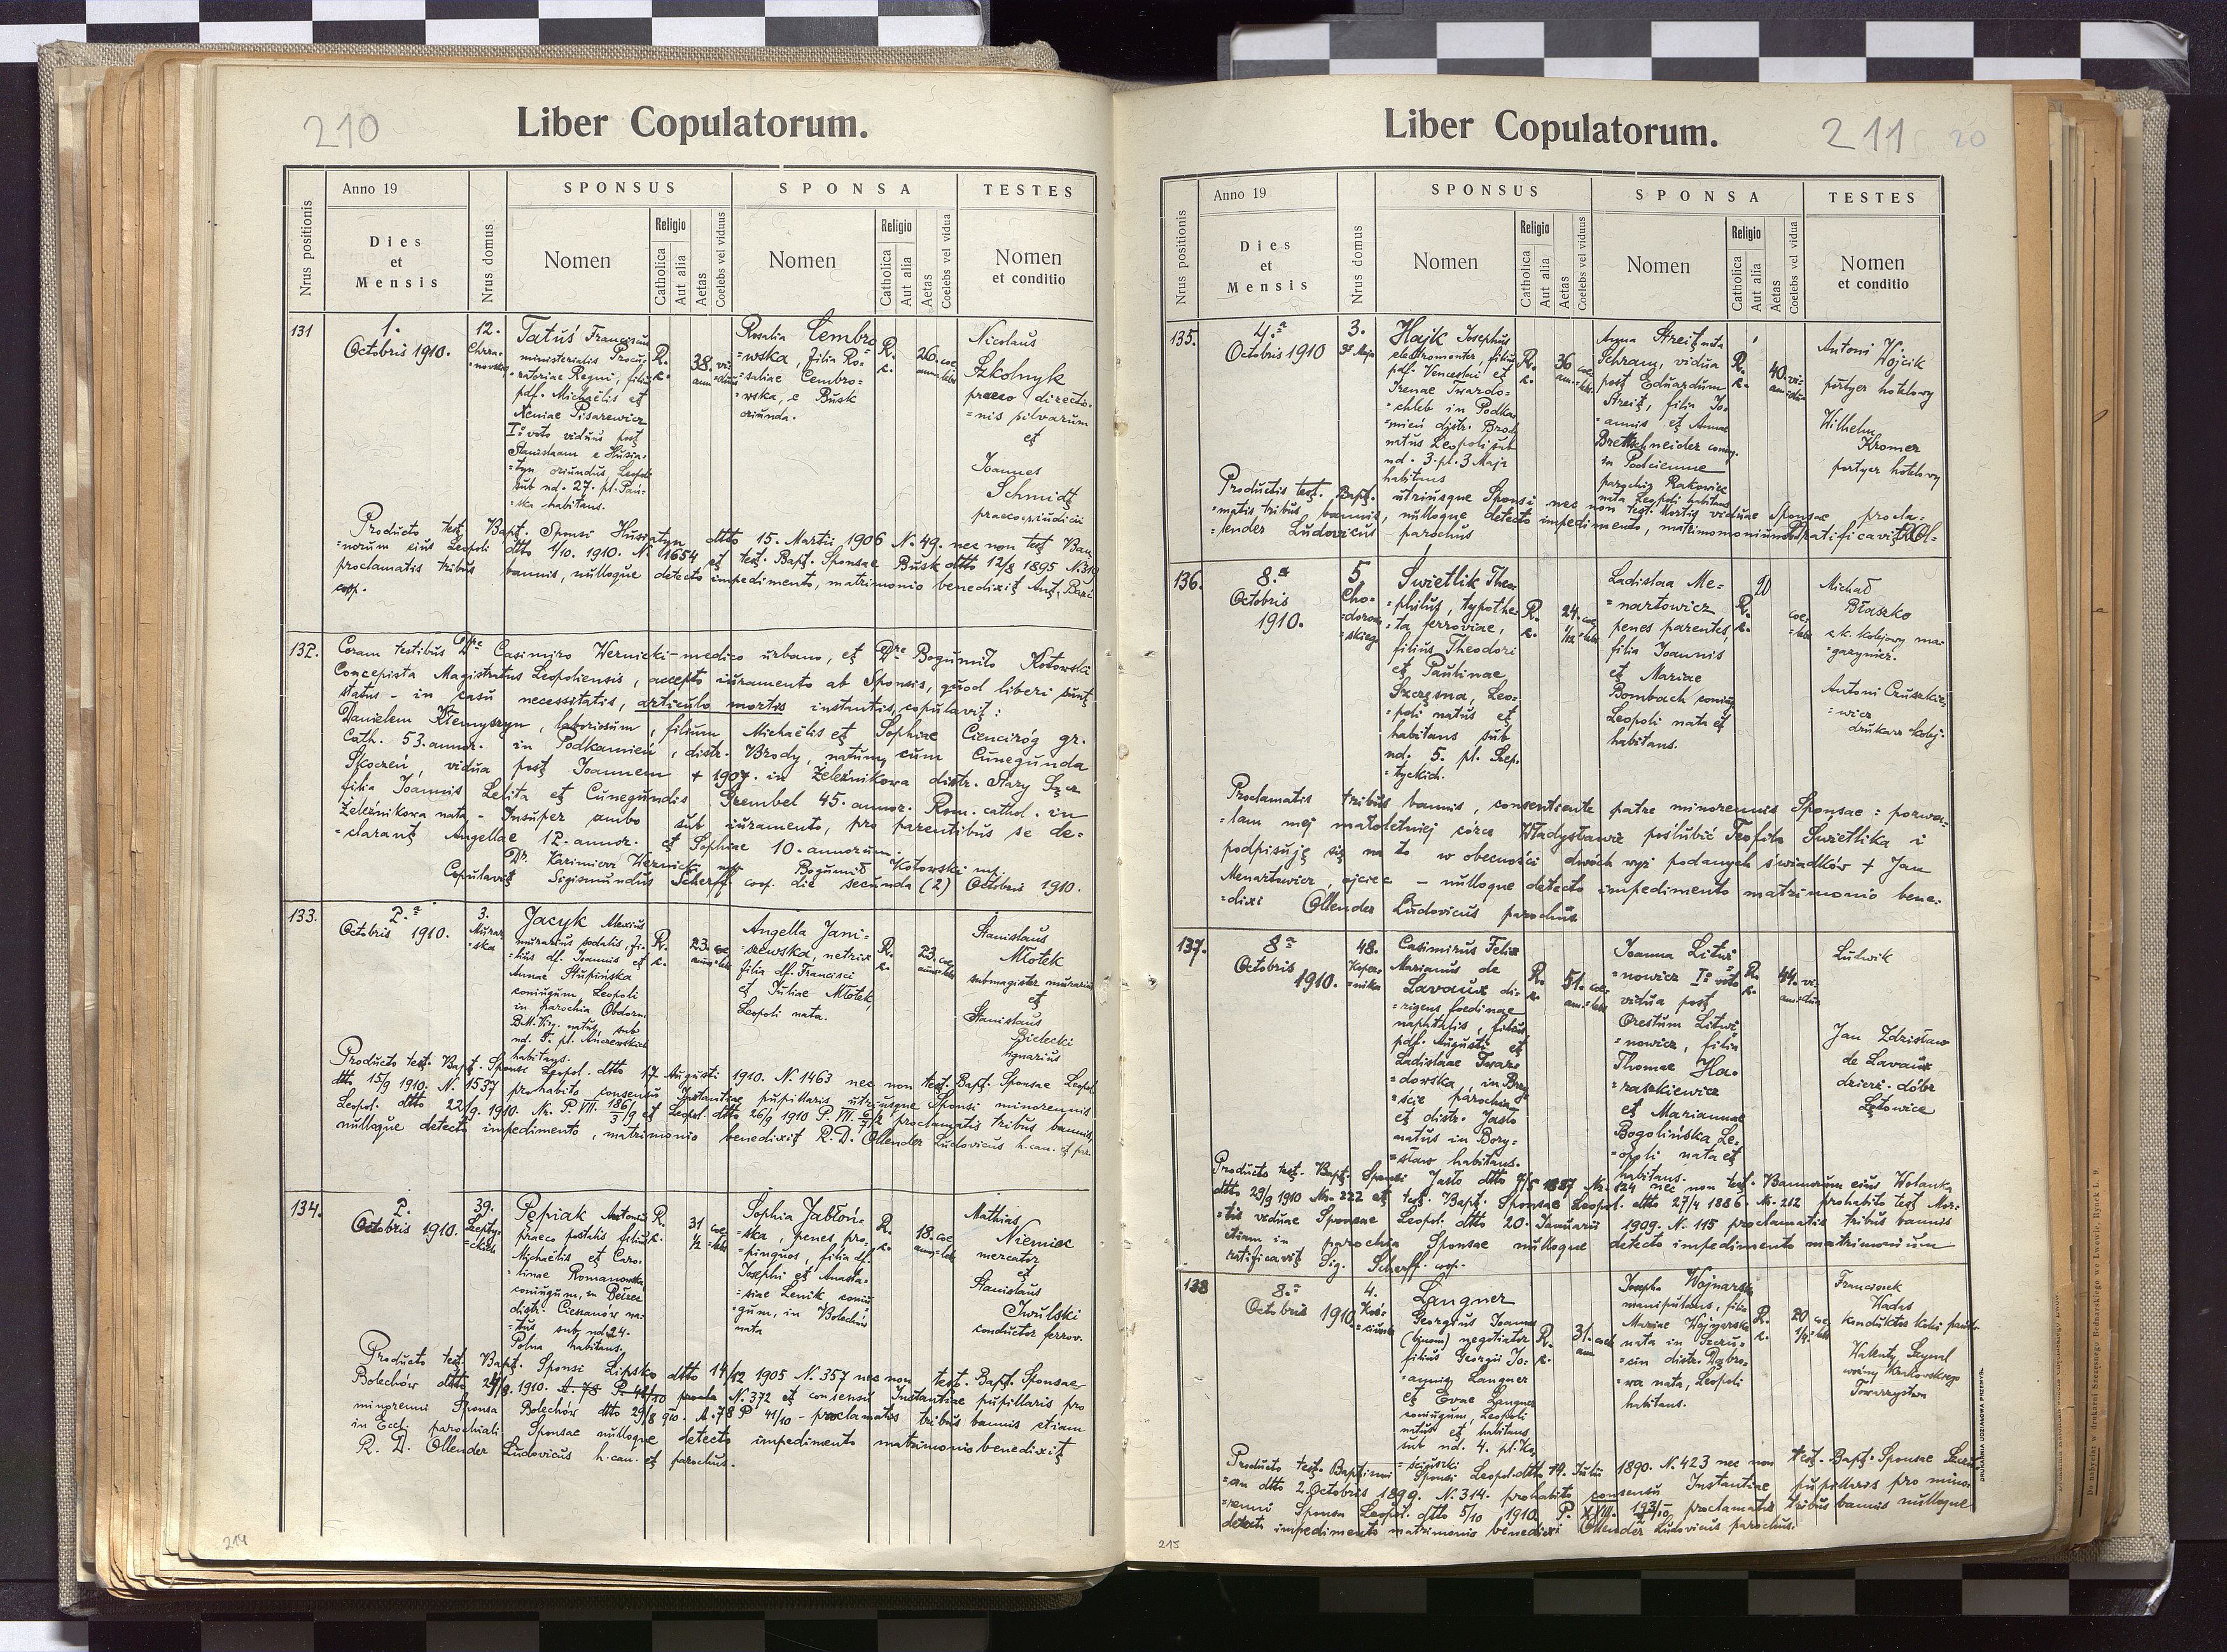 210
Liber Copulatorum.
Nrus positionis
Anno 19
Dies
et
Mensis
Nrus domus
SPONSUS
Nomen
Religio
Catholica
Aut alia
Aetas
Coelebs vel viduus
SPONSA
Nomen
Religio
Catholica
Aut alia
Aetas
Coelebs vel vidua
TESTES
Nomen
et conditio
131
1.
Octobris 1910.
12.
Tatuś Franciscus
ministerialis Procu-
=ratoriae Regni, filius
pdf. Michaëlis et
Xeniae Pisarewicz
I° voto viduus post
Stanislaam e Husia-
=tyn oriundus Leopoli
sub nd. 27. pl. Pań-
=ska habitans.
R.
38.
Rosalia Cembro
=wska, filia Ro-
=saliae Cembro-
=wska, e Busk
oriunda.
R.
26.
Nicolaus
Szkolnyk
praeco directio-
=nis silvarum
et
Joannes
Schmidt
praeco judicii
Producto test. Bapt. Sponsi Husiatyn dtto 15. Martii 1906 N. 49. nec non test. Ban-
=norum eius Leopoli dtto 1/10. 1910. N. 1654 et test. Bapt. Sponsae Busk dtto 12/8 1895
proclamatis tribus bannis, nulloque detecto impedimento, matrimonio benedixit Ant.
coop.
132.
Coram testibus Casimiro Wernicki - medico urbano, et Bogumiło Kotowski
Concepista Magistratus Leopoliensis, accepto iuramento ab Sponsis, quod liberi sunt
status - in casu necessitatis, articulo mortis instantis, copulavit:
Danielem laboriosum, filium Michaëlis et Sophiae Cienciróg gr.
Cath. 53. annor. in Podkamień, distr. Brody, natum, cum Cunegunda
Skoczeń, vidua post Joannem + 1907. in Żeleźnikowa distr. Stary Sącz
filia Joannis Lelita et Cunegundis Grembel 45. annor. Rom. cathol. in
Żeleźnikowa nata - Insuper ambo sub iuramento, pro parentibus se de-
=clarant Angellae 12. annor. et Sophiae 10. annorum.
Dr. Kazimierz Wernicki mp. Bogumił Kotowski mp.
Copulavit Sigismundus Scherff coop. die secunda (2) Octobris 1910.
133.
2.a
Octobris 1910.
3.
Murar
=ska
Jacyk Alexius
murarius sodalis, fi-
=lius df. Joannis et
Annae Stupińska
coniugum, Leopoli
in parochia Obdorm.
B.M. Virg. natus, sub
habitans.
R.
23.
Angella Jani-
=szewska, netrix
filia df. Francisci
et Juliae Młotek,
Leopoli nata.
R.
23.
Stanislaus
Młotek
submagister murarius
et
Stanislaus
Bielecki
lignarius
Producto test. Bapt. Sponsi Leopol. dtto 17. Augusti 1910. N. 1463 nec non test. Bapt. Sponsae Leopol.
dtto 15/9 1910. N. 1537 prohabito consensu Instantiae pupillaris utriusque Sponsi minorennis
Leopol. dtto 22/9. 1910. Nr. P. VII. 186/9 et Leopol. dtto 26/9 1910 P. VII. proclamatis tribus bannis,
nulloque detecto impedimento, matrimonio benedixit R. D. Ollender Ludovicus h. can. et par.
134.
2.
Octobris 1910.
39.
Szepty-
=ckich
Pepiak Antonius
praeco postalis filius
Michaëlis et Caro-
=linae Romanowska
coniugum, in Bełzec
distr. Cieszanów na-
=tus sub nd. 24.
Polna habitans.
R.
31
1/2
Sophia Jabłoń-
=ska, penes pro-
=pinquos, filia df.
Josephi et Anasta-
=siae Lenik coniu-
=gum, in Bolechów
nata
R.
18.
Mathias
Niemiec
mercator
et
Stanislaus
Iwulski
conductor ferrov.
Producto test. Bapt. Sponsi Lipsko dtto 14/12 1905 N. 357 nec non test. Bapt. Sponsae
Bolechów dtto 1910. N. 372 et consensu Instantiae pupillaris pro
minorenni Sponsa Bolechów dtto 29/8 910. A. 78 P 41/10 - proclamatis tribus bannis etiam
in Eccl. parochiali Sponsae nulloque detecto impedimento matrimonio benedixit
R. D. Ollender Ludovicus h. can. et parochus.
214
211
20
Liber Copulatorum.
Nrus positionis
Anno 19
Dies
et
Mensis
Nrus domus
SPONSUS
Nomen
Religio
Catholica
Aut alia
Aetas
Coelebs vel viduus
SPONSA
Nomen
Religio
Catholica
Aut alia
Aetas
Coelebs vel vidua
TESTES
Nomen
et conditio
135.
4.a
Octobris 1910
3.
Hajk Josephus
electromonter, filius
pdf. Venceslai et
Irenae Twardo-
=chleb in Podka-
=mień distr. Brody
natus Leopoli sub
nd. 3. pl. 3 Maja
habitans
R.
36
Anna Streit nata
Schram, vidua
post Eduardum
Streit, filia Jo-
=annis, et Annae
Brettschneider coniug.
in Podciemne
parochia Rakowiec
nata Leopoli habitans
R.
40.
Antoni Wojcik
portyer hotelowy
Wilhelm
Kromer
portyer hotelowy
Productis test. Bapt. utriusque Sponsi nec non test. Mortis viduae Sponsae procla-
=matis tribus bannis, nulloque detecto impedimento, matrimonium ratificavit Ol-
=lender Ludovicus parochus
136.
8.a
Octobris
1910.
5
Cho-
=dorow
=skiego
Swietlik Theo-
=philus, typothe-
=ta ferroviae,
filius Theodori
et Paulinae
Szczęsna, Leo-
=poli natus et
habitans sub
nd. 5. pl. Szep-
=tyckich.
R.
24.
1/2
Ladislaa Me-
=nartowicz
penes parentes,
filia Joannis
et Mariae
Bombach coniug
Leopoli nata et
habitans.
20
R.
Michał
Błaszko
c.k. kolejowy ma-
=gazynier.
Antoni Cruszkie-
=wicz
drukarz kolej.
Proclamatis tribus bannis, consentiente patre minorennis Sponsae: pozwa-
=lam mej małoletniej córce Władysławie poślubić Teofila Świetlika i
podpisuję się na to w obecności dwóch wyż podanych świadków + Jan
Menartowicz ojciec - nulloque detecto impedimento matrimonio bene-
=dixi Ollender Ludovicus parochus
137.
8.a
Octobris
1910.
48.
Koper-
=nika
Casimirus Felix
Marianus de
Lavaux di-
=rigens foedinae
naphtalis, filius
pdf. Augusti et
Ladislaae Twar-
=dowska, in Brzy
=ście parochia
et distr. Jasło
natus in Bory-
=sław habitans.
R.
51.
Joanna Litwi-
=nowicz I° voto
vidua post
Orestum Litwi-
=nowicz, filia
Thomae Ha-
=raszkiewicz
et Mariannae
Bogolińska, Le-
=opoli nata et
habitans.
R.
44.
Ludwik
Jan Zdzisław
de Lavaux
dzierż. dóbr
Łętowice
Producto test. Bapt. Sponsi Jasło dtto Nr. 124 nec non test. Bannorum eius Wolanka
dtto 29/9 1910 Nr. 222 et test. Bapt. Sponsae Leopol. dtto 27/4 1886. Nr. 212 prohabito test. Mor-
=tis viduae Sponsae Leopol. dtto 20. Januarii 1909. N. 115 proclamatis tribus bannis
etiam in parochia Sponsae nulloque detecto impedimento matrimonium
ratificavit Sig. Scherff. coop.
138
8.a
Octobris 1910
4.
Langner
Georgius Joannes
(binom) negotiator
filius Georgii Jo-
=annis Langner
et Evae Langner
coniugum, Leopoli
natus et habitans,
sub nd. 4. pl. Ko
=ściuszki
R.
31.
Josepha Wojnarska
manipulans, filia
Mariae Wojnarska
nata in Szczu-
=cin distr. Dąbro-
=wa nata, Leopoli
habitans.
R.
20
1/2
Franciszek
Hadas
konduktor kolei
Walenty Szynal
woźny
Towarzystwa
Producto test. Baptismi Sponsi Leopol. dtto 19. Julii 1890. N. 423 nec non test. Bapt. Sponsae Szczu-
=cin dtto 2. Octobris 1899. N. 314. prohabito consensu Instantiae pupillaris pro mino-
=renni Sponsa Leopol. dtto 5/10 1910. P. XVIII. proclamatis tribus bannis nulloque
detecto impedimento matrimonio benedixi Ollender Ludovicus parochus.
215
DRUKARNIA UDZIAŁOWA PRZEMYŚL.
Do nabycia w drukarni Szczęsnego Bednarskiego we Lwowie, Rynek L. 9.